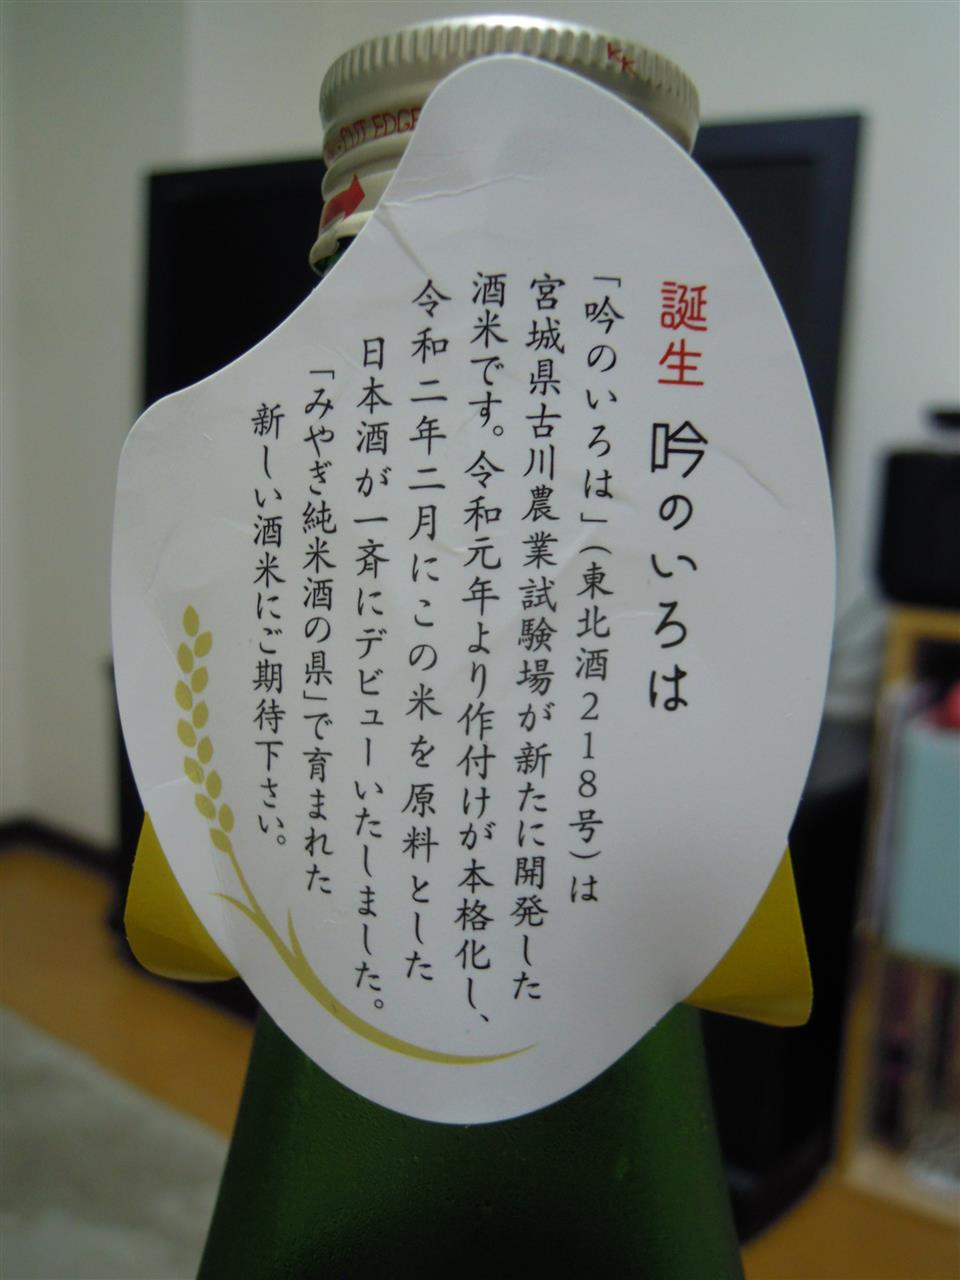 誕生 吟のいろは
「吟のいろは」（東北酒218号）は
宮城県古川農業試験場が新たに開発した
酒米です。令和元年より作付けが本格化し、
令和二年二月にこの米を原料とした
日本酒が一斉にデビューいたしました。
「みやぎ純米酒の県」で育まれた
新しい酒米にご期待下さい。
KK
CUT EDGE